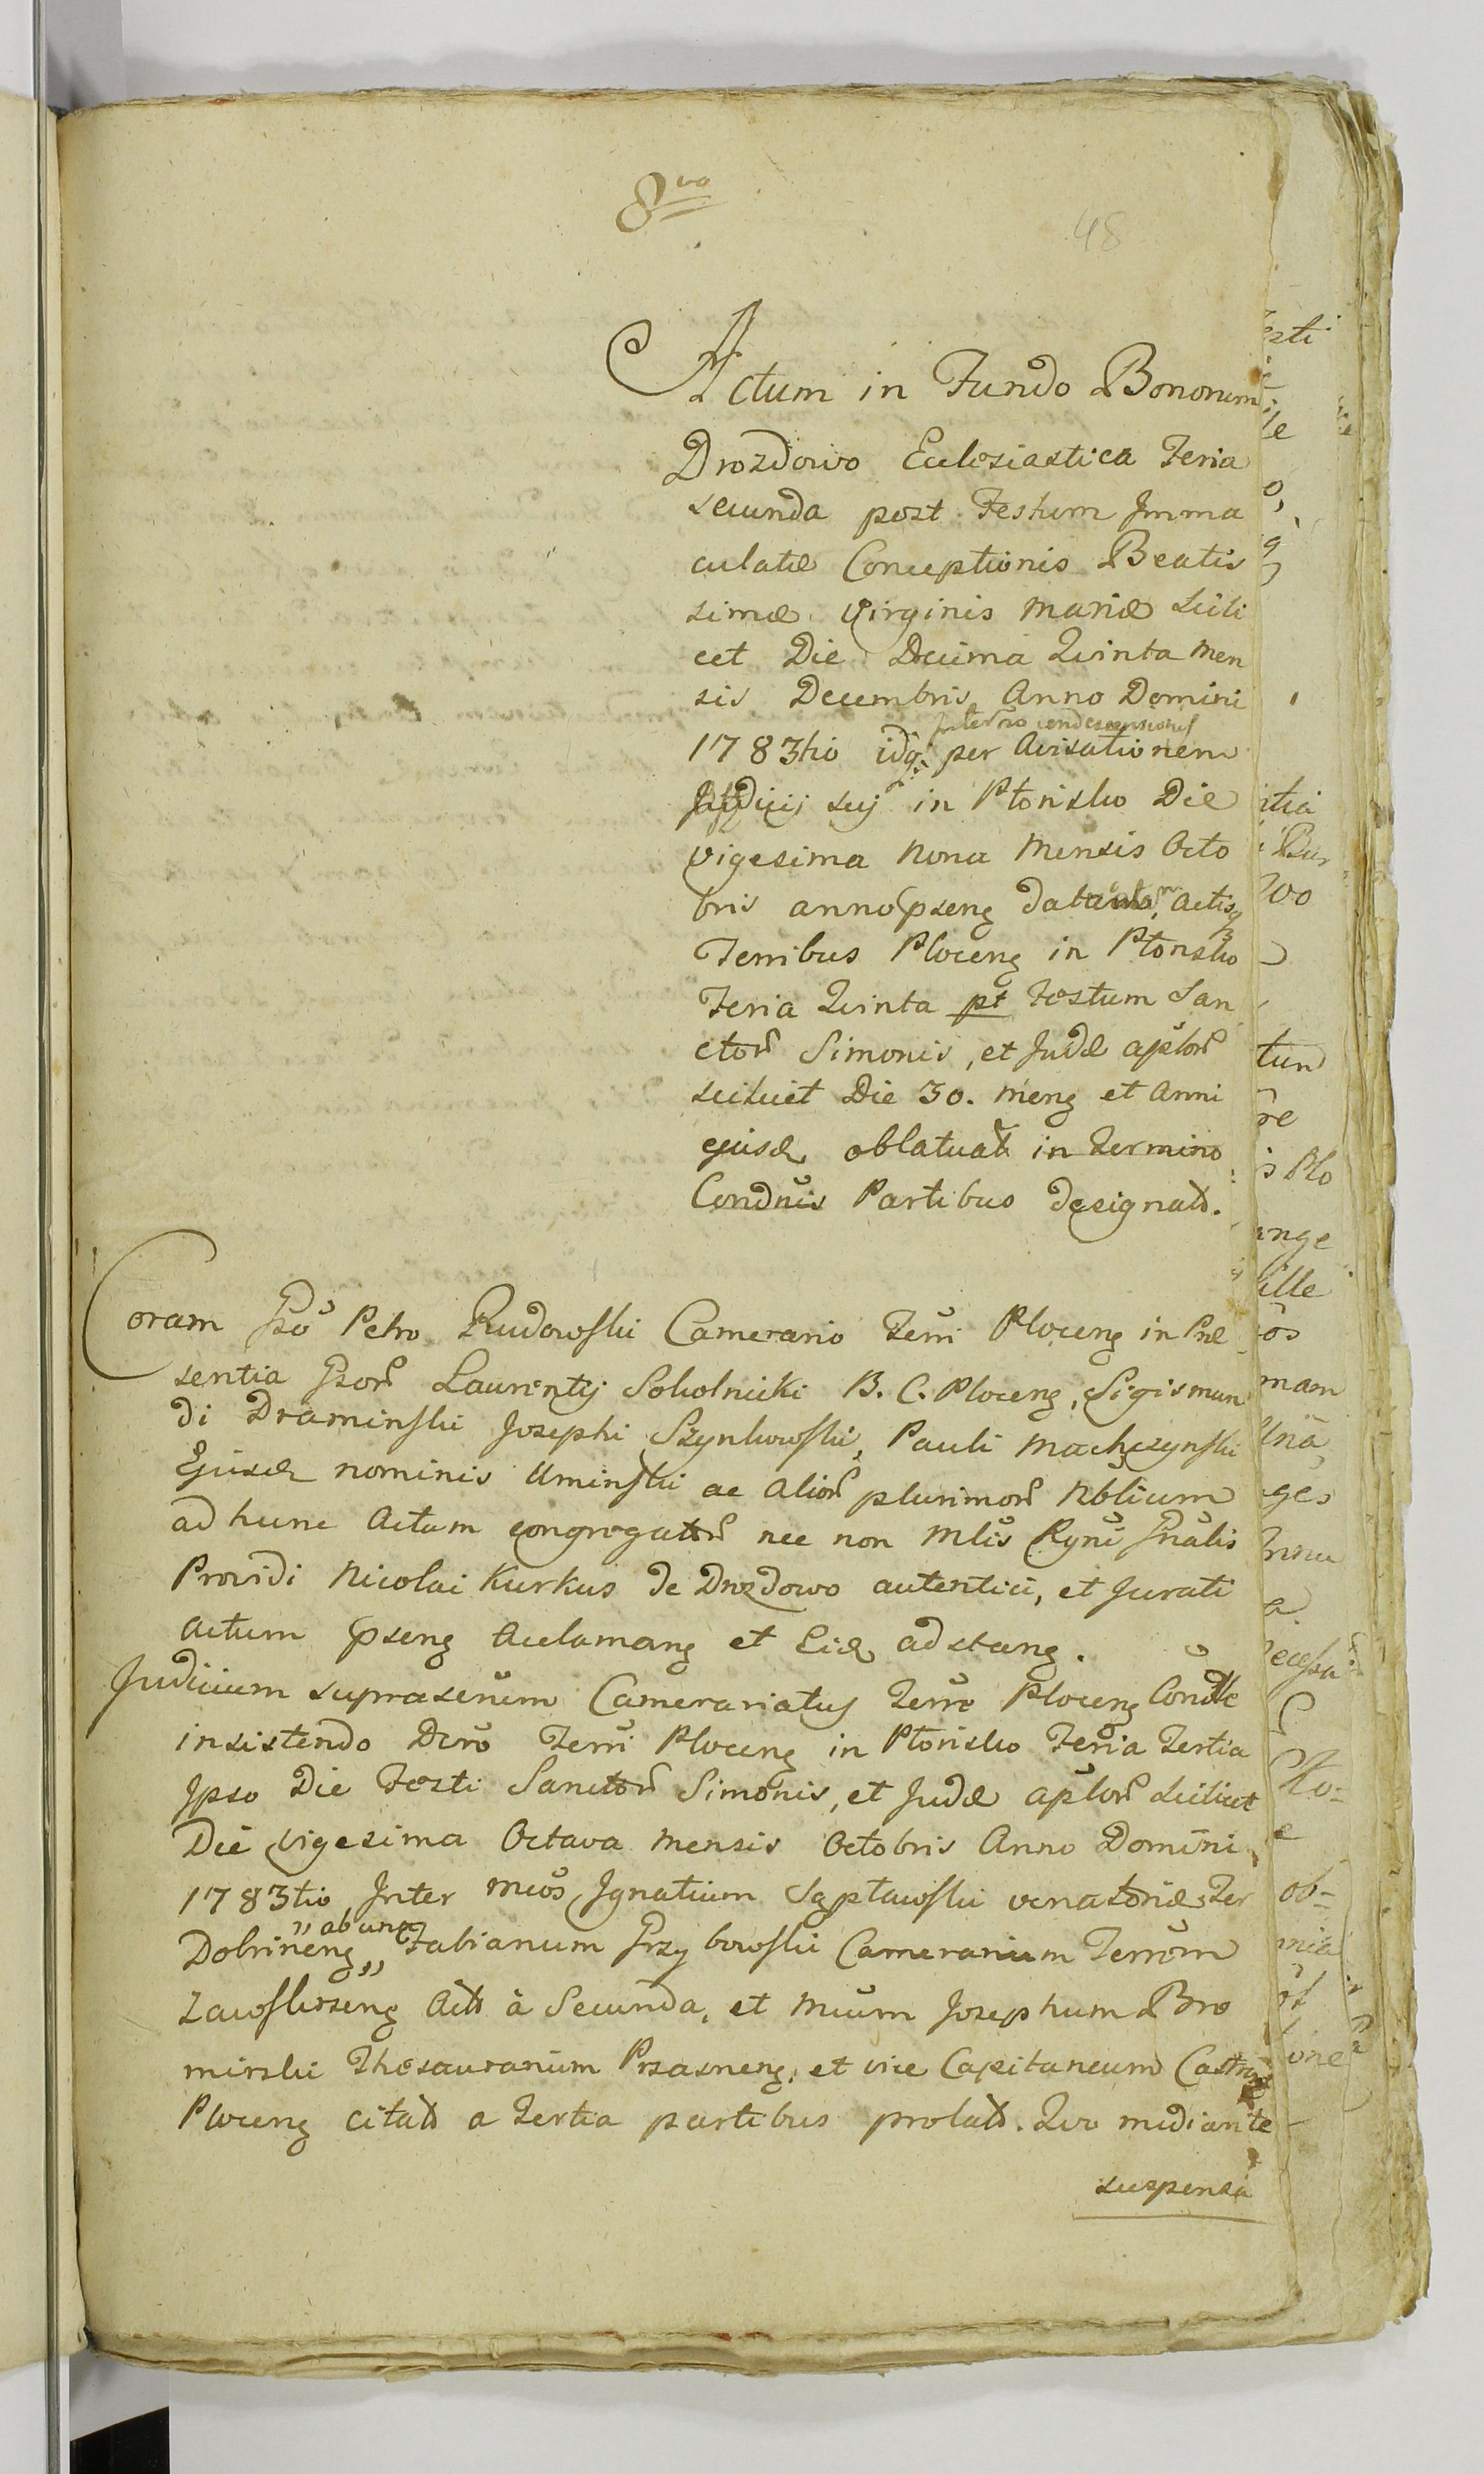 8vo
48
Actum in Fundo Bonorum
Drozdowo Ecclesiastica Feria
secunda post Festum Imma
culatæ Conceptionis Beatis
simæ Virginis Mariæ scili
cet Die Decima Quinta Men
sis Decembris Anno Domini
condescensionis
1783tio idq; per Avisationem
Judicij sui in Płońsko Die
vigesima Nona Mensis Octo
bris anno pseng Actisq;
Terribus Ploceng in Płońsko
Feria Quinta pt Festum San
ctor̃ Simonis, et Judæ aplor̃
scilicet Die 30. Meng et Anni
ejusd oblatuat in Termino
Condnis Partibus designato.
Coram Gso Petro Rudowski Camerario Terri Ploceng in Præ
sentia Gsor̃ Laurentij Sokolnicki B. C. Ploceng, Sigismun
di Draminski Josephi Szynkowski, Pauli Machczynski
Ejusd nominis Uminski ac Alior̃ plurimor̃ Nblium
ad hunc Actum congregator̃ nec non Mlis Rgni Gnalis
Providi Nicolai Kurkus de Drozdowo autentici, et Jurati
Actum pseng Acclamang et Eid adstang.
Judicium suprasenum Camerariatus Terræ Ploceng
insistendo Dcro Terri Ploceng in Płońsko Feria Tertia
Ipso Die Festi Sanctor̃ Simonis, et Judæ aplor̃ scilicet
Die vigesima Octava Mensis Octobris Anno Domini
1783tio Inter Mcos Ignatium venatoridæ Ter
ab una
Dobrineng Fabianum Grzybowski Camerarium Terrum
Zawskrzeng Act à Secunda, et Mcum Josephum Bro
mirski Thesaurarium Przasneng, et vice Capitaneum
Ploceng citato a Tertia partibus prolato. Quo mediante
suspensa